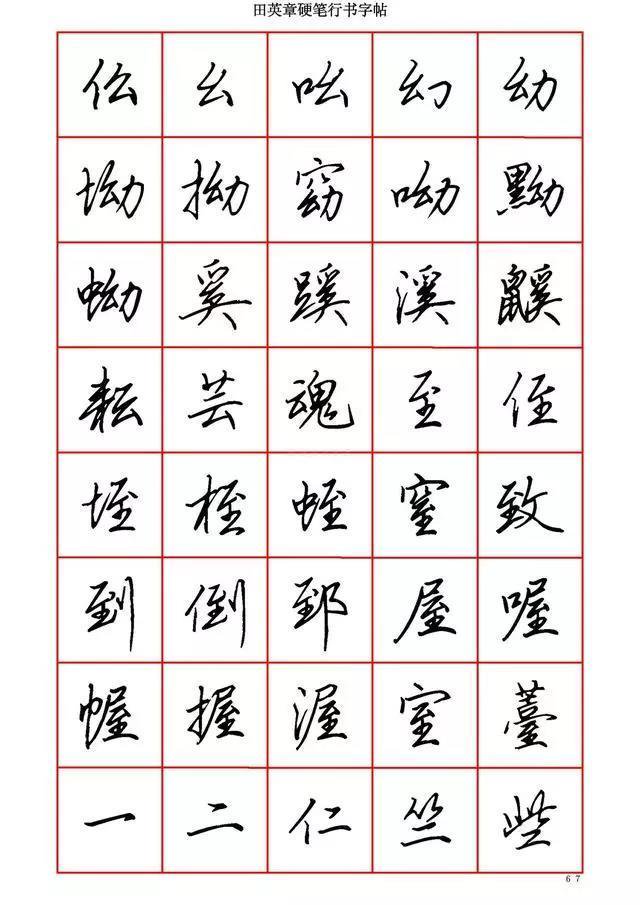 田英章硬笔行书字帖
伝 幺 吆 幻 幼
坳 拗 窈 呦 黝
蚴 奚 蹊 溪 鼷
耘 芸 魂 至 侄
垤 桎 蛭 窒 致
到 倒 郅 屋 喔
幄 握 渥 室 薹
一 二 仁 竺 些
67